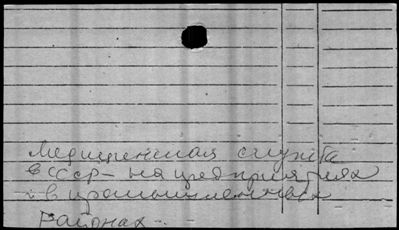 Медицинская служба
в СССР - на предприятиях
и в промышленных
районах.